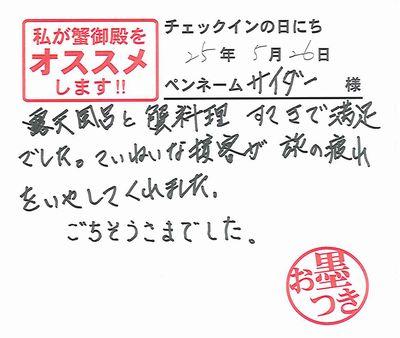 私が蟹御殿を
オススメ
します!!
チェックインの日にち
25年 5月 26日
ペンネーム サイダー 様
露天風呂と蟹料理 すてきで満足
でした。ていねいな接客が 旅の疲れ
をいやしてくれました。
ごちそうさまでした。
お墨つき